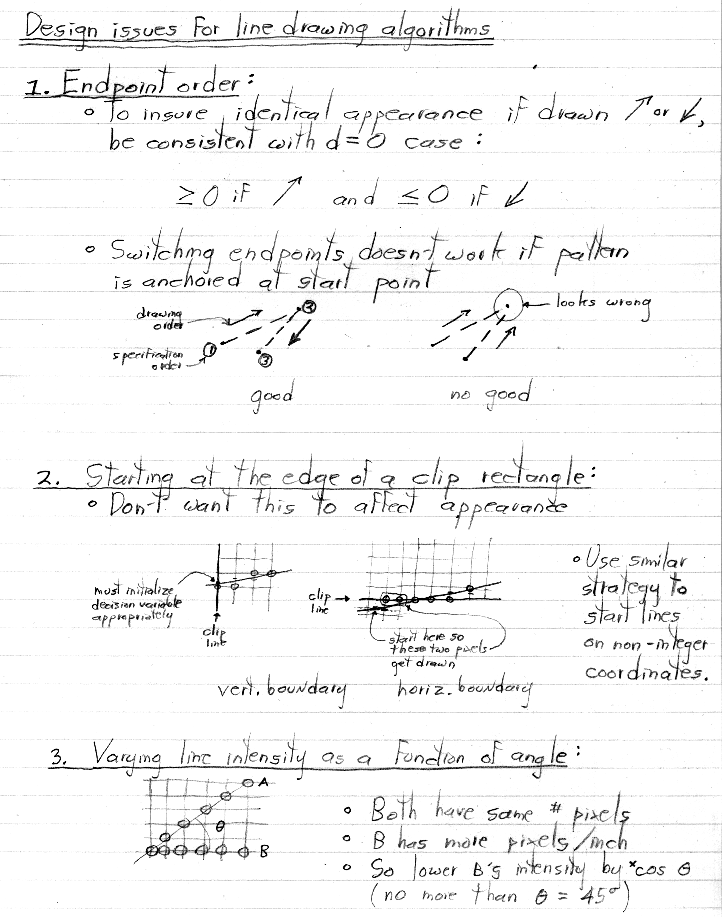 Design issues for line drawing algorithms
1. Endpoint order:
° To insure identical appearance if drawn ↗ or ↙,
be consistent with d=0 case:
≥0 if ↗ and ≤0 if ↙
° Switching endpoints doesn't work if pattern
is anchored at start point
drawing
order
specification
order
1
2
3
good
looks wrong
no good
2. Starting at the edge of a clip rectangle:
° Don't want this to affect appearance
must initialize
decision variable
appropriately
clip
line
vert. boundary
clip
line
start here so
these two pixels
get drawn
horiz. boundary
° Use similar
strategy to
start lines
on non-integer
coordinates.
3. Varying line intensity as a function of angle:
A
θ
B
° Both have same # pixels
° B has more pixels/inch
° So lower B's intensity by *cos θ
(no more than θ = 45°)